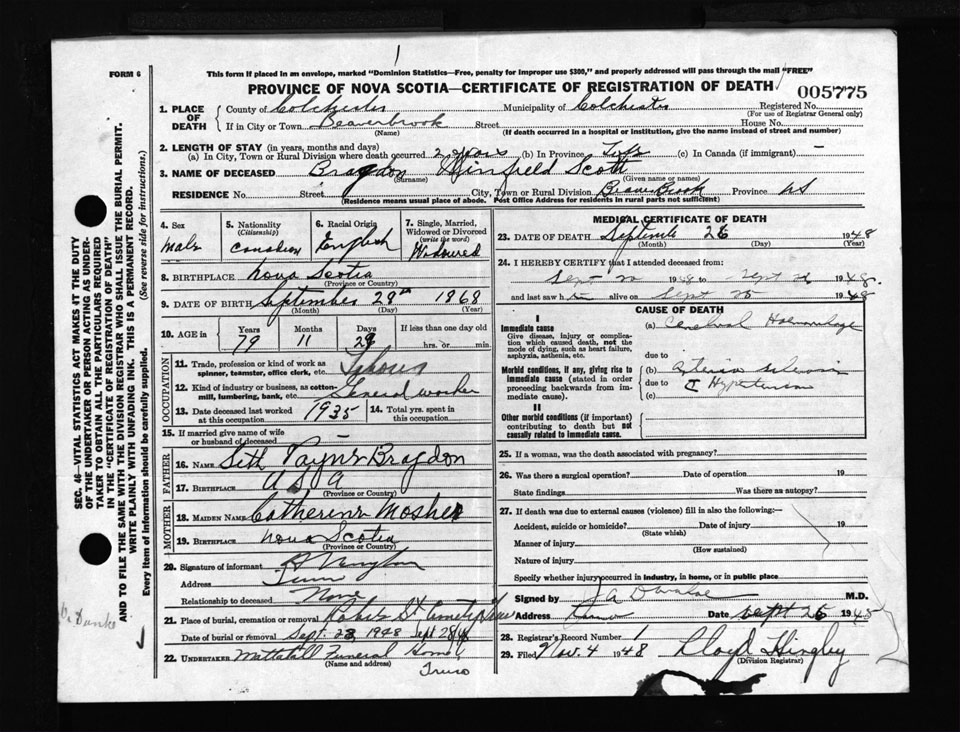 FORM 6
This form if placed in an envelope, marked "Dominion Statistics—Free, penalty for improper use $300," and properly addressed will pass through the mail "FREE"
PROVINCE OF NOVA SCOTIA—CERTIFICATE OF REGISTRATION OF DEATH
005775
1. PLACE OF DEATH
County of Colchester Municipality of Colchester Registered No.
(For use of Registrar General only)
If in City or Town Beaverbrook Street House No.
(Name) (If death occurred in a hospital or institution, give the name instead of street and number)
2. LENGTH OF STAY (in years, months and days)
(a) In City, Town or Rural Division where death occurred 2 years (b) In Province Life (c) In Canada (if immigrant) —
3. NAME OF DECEASED Bragdon Winsfield Scott
(Surname) (Given name or names)
RESIDENCE No. Street City, Town or Rural Division Beaver Brook Province NS
(Residence means usual place of abode. Post Office Address for residents in rural parts not sufficient)
4. Sex
male
5. Nationality
(Citizenship)
Canadian
6. Racial Origin
English
7. Single, Married, Widowed or Divorced
(write the word)
Widowed
8. BIRTHPLACE Nova Scotia
(Province or Country)
9. DATE OF BIRTH September 29th 1868
(Month) (Day) (Year)
10. AGE in
Years Months Days If less than one day old
79 11 28 hrs. or min.
OCCUPATION
11. Trade, profession or kind of work as spinner, teamster, office clerk, etc. Labourer
12. Kind of industry or business, as cotton-mill, lumbering, bank, etc. General worker
13. Date deceased last worked at this occupation 1935
14. Total yrs. spent in this occupation
15. If married give name of wife or husband of deceased —
FATHER
16. NAME Seth Payne Bragdon
17. BIRTHPLACE U S A
(Province or Country)
MOTHER
18. MAIDEN NAME Catherine Mosher
19. BIRTHPLACE Nova Scotia
(Province or Country)
20. Signature of informant
Address Truro
Relationship to deceased None
21. Place of burial, cremation or removal Robie St Cemetery Truro
Date of burial or removal Sept. 28, 1948 Sept 28/48
22. UNDERTAKER Mattatall Funeral Home
(Name and address)
Truro
MEDICAL CERTIFICATE OF DEATH
23. DATE OF DEATH September 26 1948
(Month) (Day) (Year)
24. I HEREBY CERTIFY that I attended deceased from:
Sept 1948 to Sept 1948
and last saw him alive on Sept 25 1948
CAUSE OF DEATH
I
Immediate cause
Give disease, injury or complication which caused death, not the mode of dying, such as heart failure, asphyxia, asthenia, etc.
(a) Cerebral Haemorrhage
due to
Morbid conditions, if any, giving rise to immediate cause (stated in order proceeding backwards from immediate cause).
(b) Arterio Sclerosis
due to Hypertension
(c)
II
Other morbid conditions (if important) contributing to death but not causally related to immediate cause.
25. If a woman, was the death associated with pregnancy?
26. Was there a surgical operation? Date of operation 19
State findings Was there an autopsy?
27. If death was due to external causes (violence) fill in also the following:—
Accident, suicide or homicide? Date of injury 19
(State which)
Manner of injury
(How sustained)
Nature of injury
Specify whether injury occurred in industry, in home, or in public place
Signed by M.D.
Address Truro Date Sept 26 1948
28. Registrar's Record Number 1
29. Filed Nov. 4 1948 Lloyd Hingley
(Division Registrar)
SEC. 46—VITAL STATISTICS ACT MAKES IT THE DUTY OF THE UNDERTAKER OR PERSON ACTING AS UNDERTAKER TO OBTAIN ALL THE PARTICULARS REQUIRED IN THE "CERTIFICATE OF REGISTRATION OF DEATH" AND TO FILE THE SAME WITH THE DIVISION REGISTRAR WHO SHALL ISSUE THE BURIAL PERMIT.
WRITE PLAINLY WITH UNFADING INK. THIS IS A PERMANENT RECORD.
Every item of information should be carefully supplied. (See reverse side for instructions.)